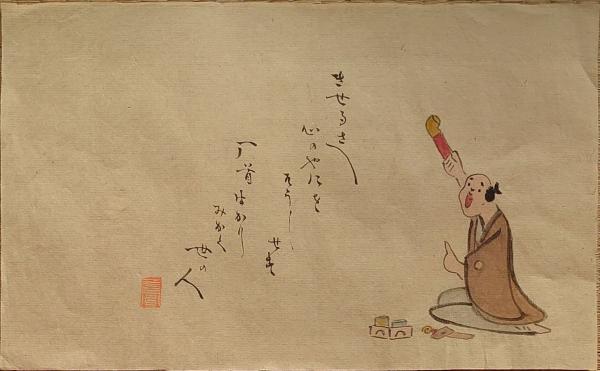 きせるさへ
心のやにを
そうし
せす
厂首はかり
みかく
世の人